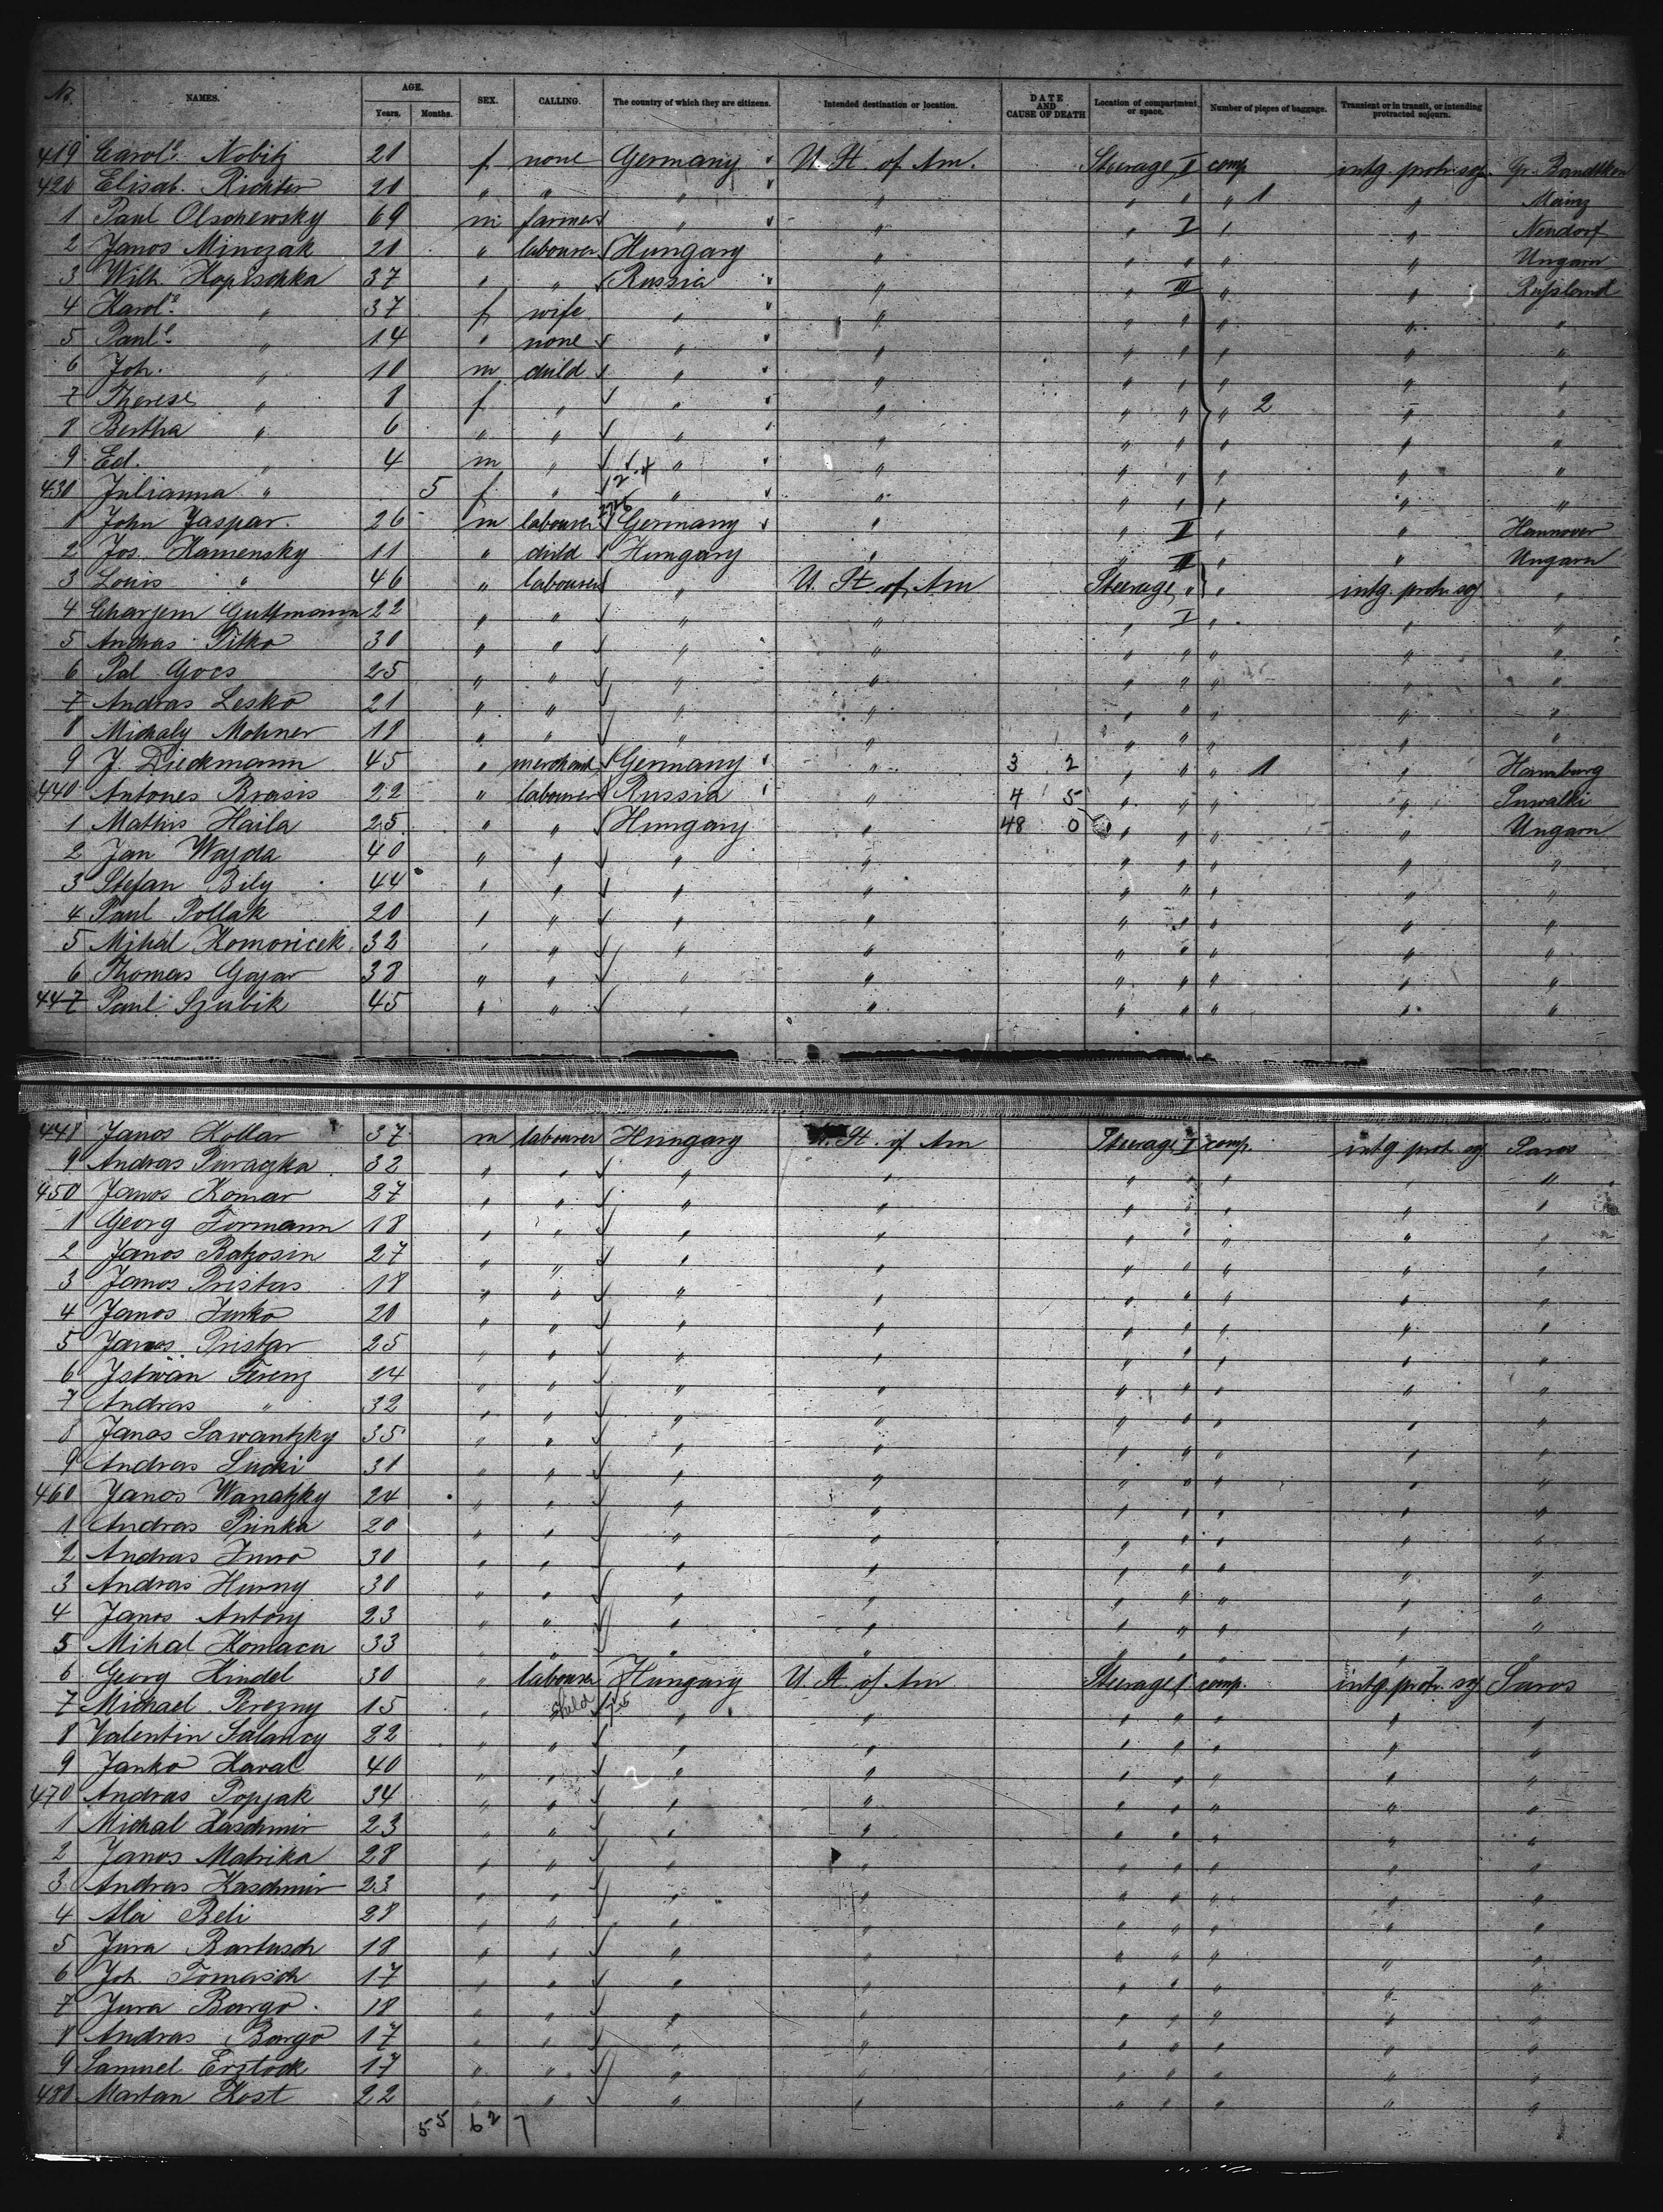 No. NAMES. AGE. Years. Months. SEX. CALLING. The country of which they are citizens. Intended destination or location. DATE AND CAUSE OF DEATH Location of compartment or space. Number of pieces of baggage. Transient or in transit, or intending protracted sojourn.
419 Carol^e. Nobitz 20 f none Germany U. St. of Am. Steerage II comp intg protr. soj.
420 Elisab. Richter 20 " " " " " " " 1 " Mainz
1 Paul Olschewsky 69 m farmer " " " I " " Neudorf
2 Janos Minczak 20 " labourer Hungary " " " " " Ungarn
3 Wilh. Kopischka 37 " " Russia " " III " " Russland
4 Karol^e. " 37 f wife " " " " " " "
5 Paul^e. " 14 " none " " " " " " "
6 Joh. " 10 m child " " " " " " "
7 Therese " 8 f " " " " " " 2 " "
8 Bertha " 6 " " " " " " " " "
9 Ed. " 4 m " " " " " " " "
430 Julianna " 5 f " " " " " " " "
1 John Jaspar. 26 m labourer Germany " " II " " Hannover
2 Jos. Kamensky 11 " child Hungary " " III " " Ungarn
3 Louis " 46 " labourer " U. St. of Am Steerage " " intg. protr. soj "
4 Guttmann 22 " " " " " I " " "
5 Andras Titko 30 " " " " " " " " "
6 Pal Gocs 25 " " " " " " " " "
7 Andras Lesko 21 " " " " " " " " "
8 Michaly Mohner 18 " " " " " " " " "
9 J. Dieckmann 45 " merchant Germany " 3 2 " " " 1 " Hamburg
440 Antones Brasis 22 " labourer Russia " 4 5 " " " " Suwalki
1 Mathis Haila 25 " " Hungary " 48 0 " " " " Ungarn
2 Jan Wajda 40 " " " " " " " " "
3 Stefan Bily 44 " " " " " " " " "
4 Paul Pollak 20 " " " " " " " " "
5 Mihal Komoricek 32 " " " " " " " " "
6 Thomas Gajar 38 " " " " " " " " "
447 Paul Szubik 45 " " " " " " " " "
448 Janos Kollar 37 m labourer Hungary U. St. of Am Steerage I comp. intg prot. soj Saros
9 Andras Puraczka 32 " " " " " " " " "
450 Janos Komar 27 " " " " " " " " "
1 Georg Formann 18 " " " " " " " " "
2 Janos Batzosin 27 " " " " " " " " "
3 Janos Pristas 18 " " " " " " " " "
4 Janos Jurko 20 " " " " " " " " "
5 Janos Pristzar 25 " " " " " " " " "
6 Istwän Ferenz 24 " " " " " " " " "
7 Andras " 32 " " " " " " " " "
8 Janos Sawantzky 35 " " " " " " " " "
9 Andras Sucki 31 " " " " " " " " "
460 Janos Wanatzky 24 " " " " " " " " "
1 Andras Pimka 20 " " " " " " " " "
2 Andras 30 " " " " " " " " "
3 Andras Hurny 30 " " " " " " " " "
4 Janos Antony 23 " " " " " " " " "
5 Mihal Komacu 33 " " " " " " " " "
6 Georg Kindel 30 " labourer Hungary U. St. of Am Steerage I comp. intg protr. soj Saros
7 Michael Perezny 15 " child " " " " " " "
8 Valentin Salancy 22 " " " " " " " " "
9 Janko Karal 40 " " " " " " " " "
470 Andras Popjak 34 " " " " " " " " "
1 Michal Kaschmir 23 " " " " " " " " "
2 Janos Matrika 28 " " " " " " " " "
3 Andras Kaschmir 23 " " " " " " " " "
4 Ala Beli 28 " " " " " " " " "
5 Jura Bartusch 18 " " " " " " " " "
6 Joh. Tomasch 17 " " " " " " " " "
7 Jura Bargo 18 " " " " " " " " "
8 Andras Bargo 17 " " " " " " " " "
9 Samuel Erstock 17 " " " " " " " " "
480 Martan Kost 22 " " " " " " " " "
55 62 7